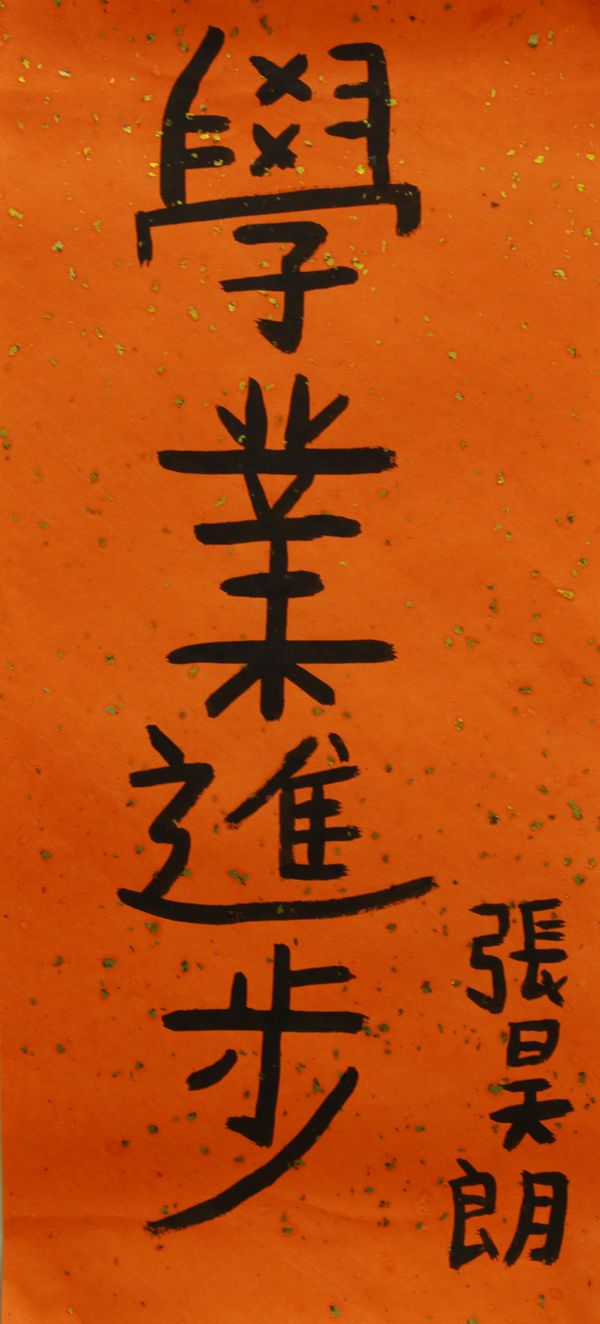 學業進步
張昊朗